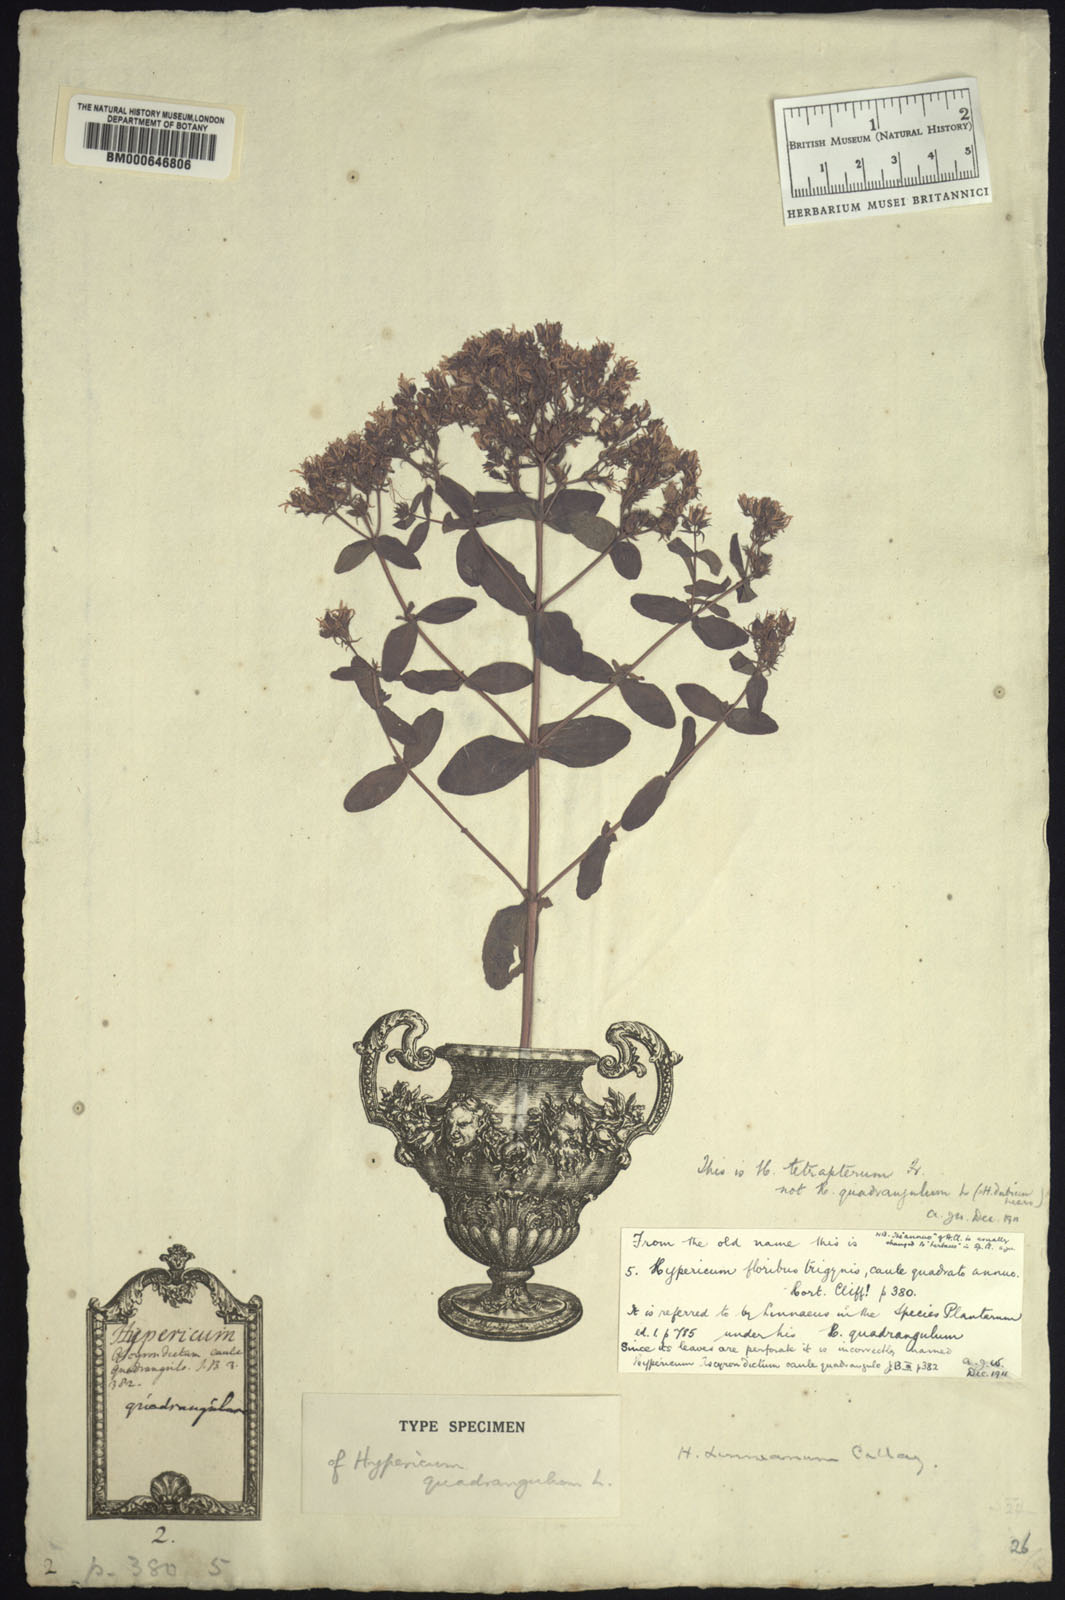 THE NATURAL HISTORY MUSEUM, LONDON
DEPARTMEMT OF BOTANY
BM000646806
1 2
BRITISH MUSEUM (NATURAL HISTORY)
1 2 3 4 5
HERBARIUM MUSEI BRITANNICI
This is H. tetrapterum Fr.
not H. quadrangulum L (H. dubium
Dec. 1911
From the old name this is
5. Hypericum floribus trigynis, caule quadrato annuo.
Hort. Cliff! p 380.
It is referred to by Linnaeus in the Species Plantarum
Ed. 1 p 785 under his H. quadrangulum
Since its leaves are perforate it is incorrectly named
Hypericum Ascyron dictum caule quadrangulo J.B. III p 382
Dec. 1911
Hypericum
Ascyron dictum caule
quadrangulo. J. B. 3.
382.
quadrangulum
TYPE SPECIMEN
of Hypericum
quadrangulum L.
H. Linneanum Callay.
2.
2 p. 380 5
26